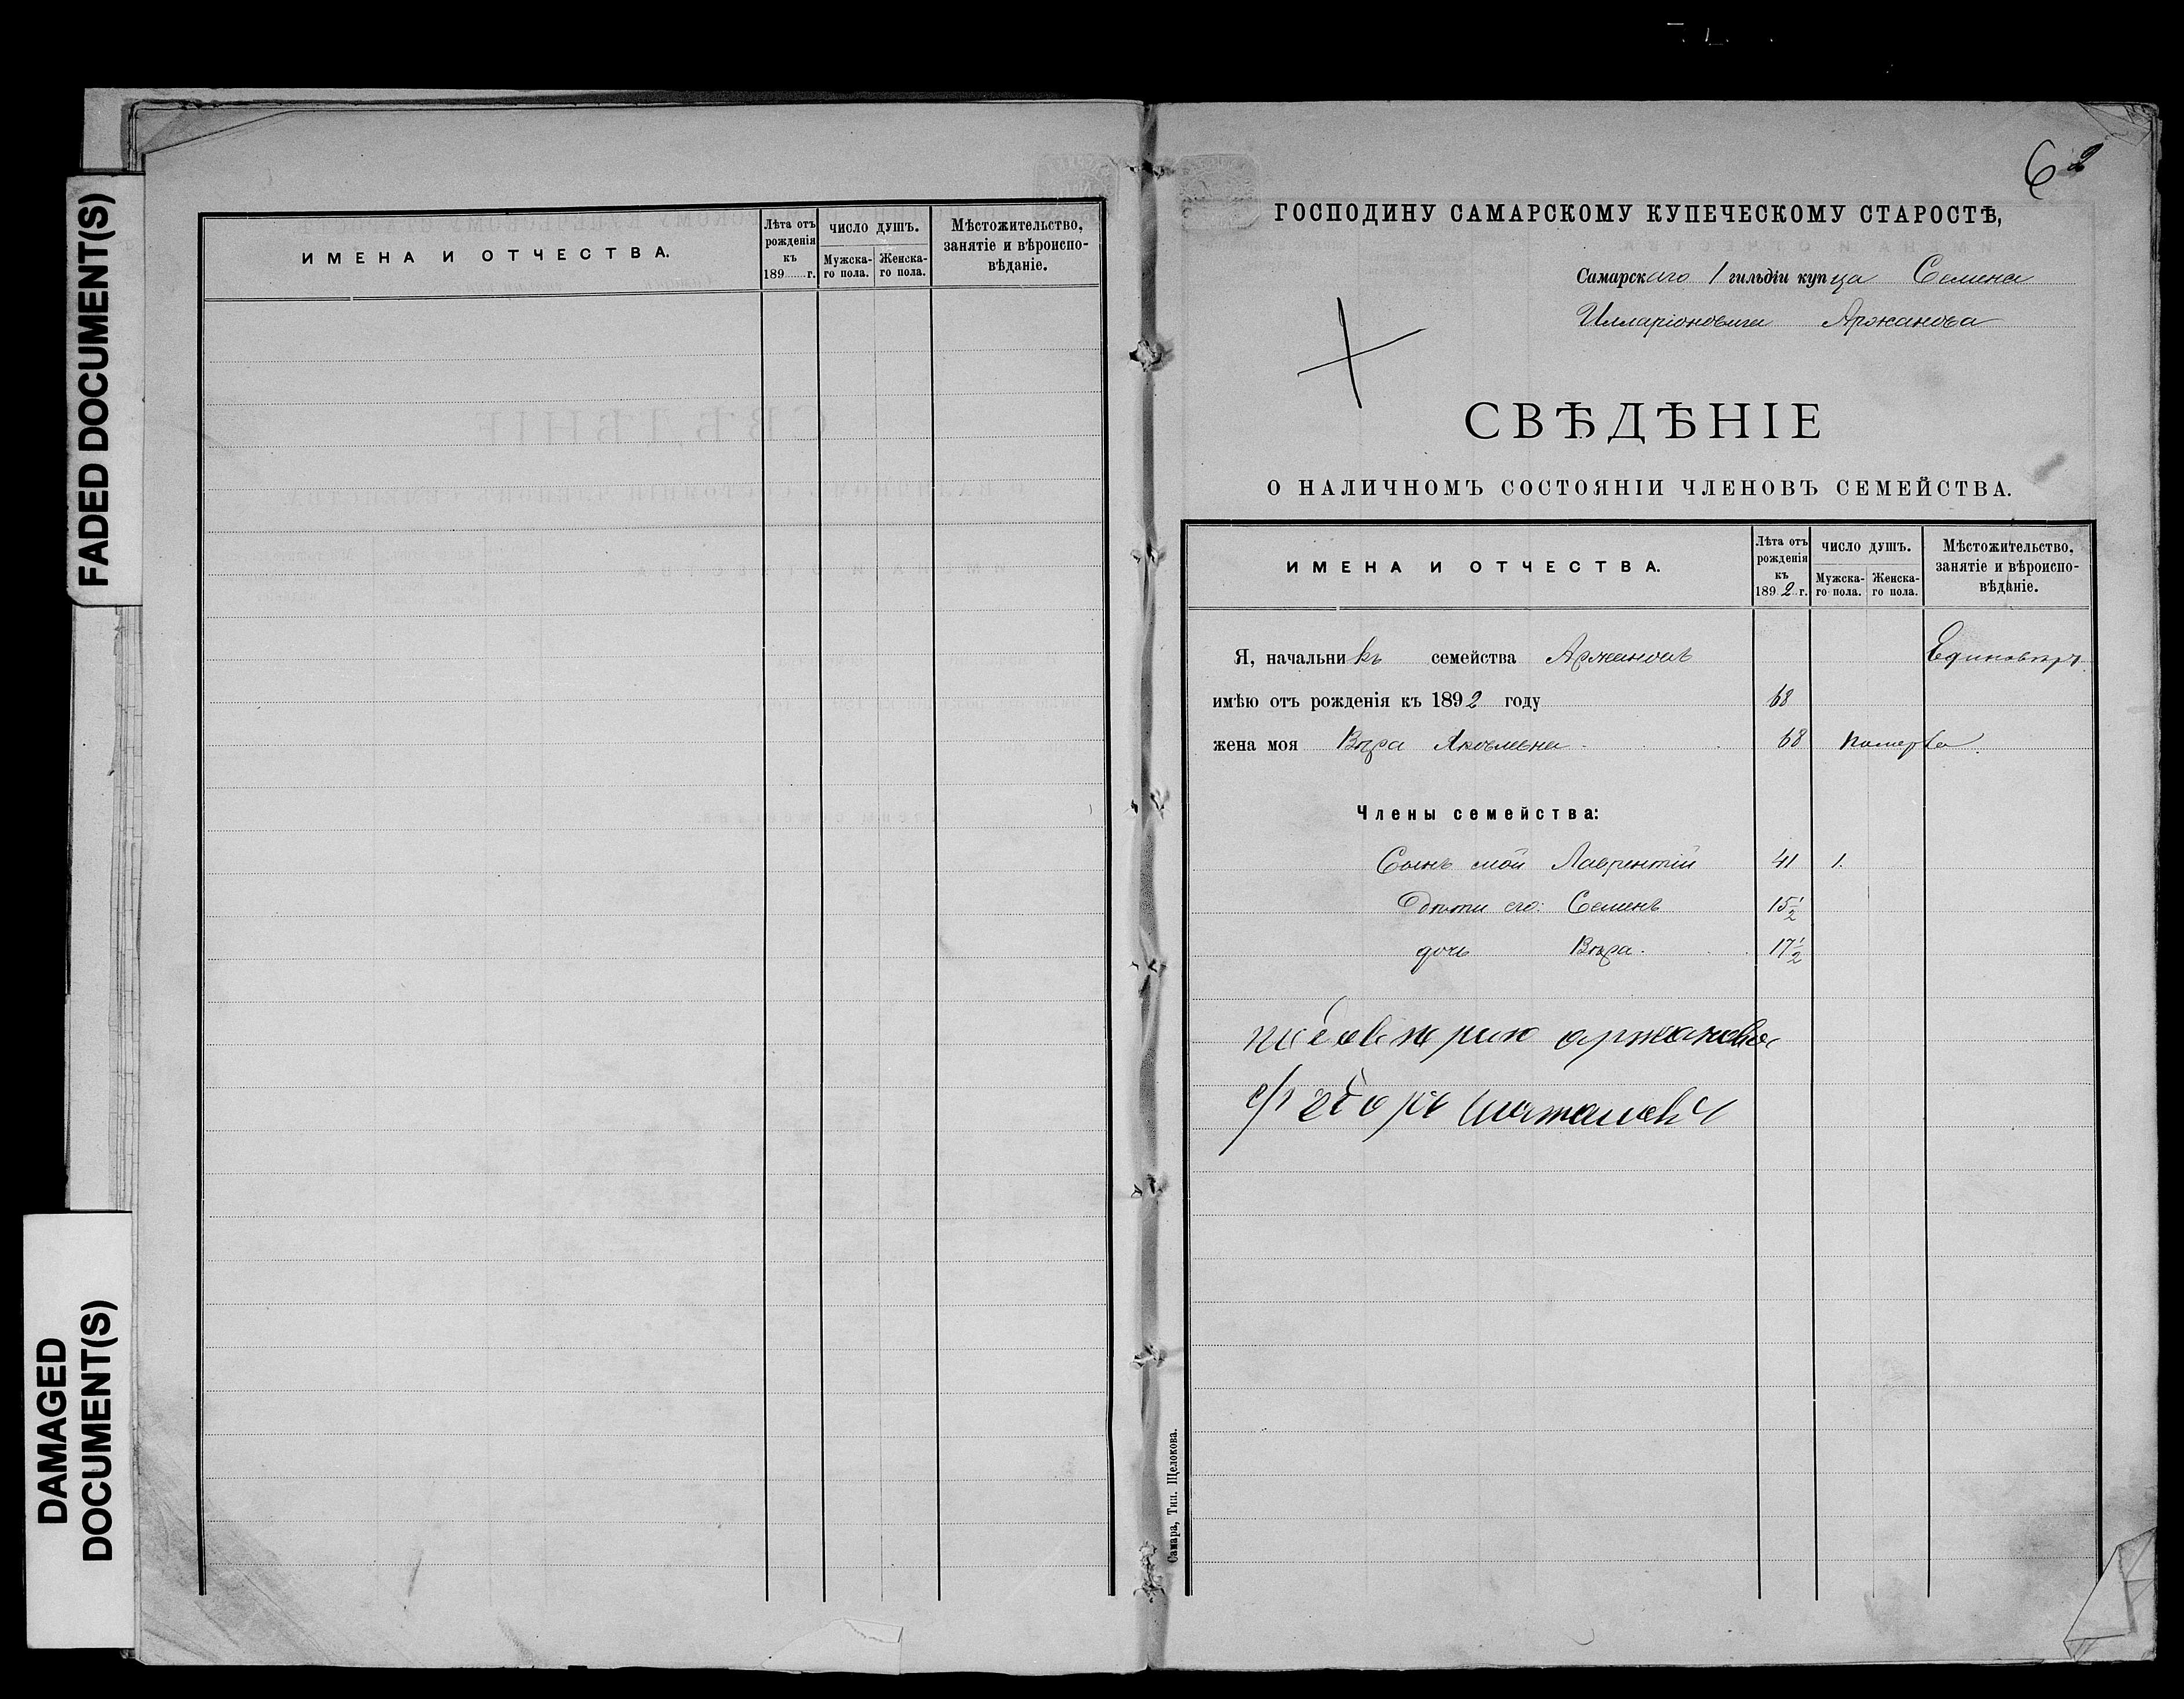 FADED DOCUMENT(S)
DAMAGED
DOCUMENT(S)
ИМЕНА И ОТЧЕСТВА.
Лѣта отъ
рожденія
къ
189 г.
ЧИСЛО ДУШЪ.
Мужска-
го пола.
Женска-
го пола.
Мѣстожительство,
занятіе и вѣроиспо-
вѣданіе.
62
ГОСПОДИНУ САМАРСКОМУ КУПЕЧЕСКОМУ СТАРОСТѢ,
Самарскаго 1 гильдіи купца Семена
Илларіоновича Аржанова
СВѢДѢНІЕ
О НАЛИЧНОМЪ СОСТОЯНІИ ЧЛЕНОВЪ СЕМЕЙСТВА.
ИМЕНА И ОТЧЕСТВА.
Лѣта отъ
рожденія
къ
1892 г.
ЧИСЛО ДУШЪ.
Мужска-
го пола.
Женска-
го пола.
Мѣстожительство,
занятіе и вѣроиспо-
вѣданіе.
Я, начальникъ семейства Аржановъ Единовѣр.
имѣю отъ рожденія къ 1892 году 68
жена моя Вѣра Яковлевна 68 померла.
Члены семейства:
Сынъ мой Лаврентій 41 1.
Дѣти его: Семенъ 15 1/2
дочь Вѣра. 17 1/2
аржанова
Самара, Тип. Щелокова.